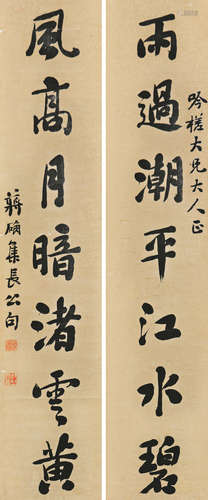 吟槎大兄大人正
雨過潮平江水碧
風高月暗渚雲黃
集長公句